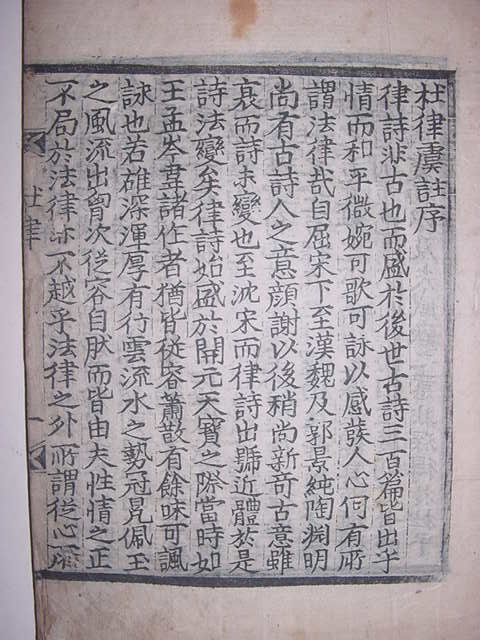 杜律虞註序
律詩非古也而盛於後世古詩三百篇皆出乎
情而和平微婉可歌可詠以感發人心何有所
謂法律哉自屈宋下至漢魏及郭景純陶淵明
尚有古詩人之意顔謝以後稍尚新奇古意雖
衰而詩未變也至沈宋而律詩出號近體於是
詩法變矣律詩始盛於開元天寶之際當時如
王孟岑韋諸作者猶皆從容蕭散有餘味可諷
詠也若雄深渾厚有行雲流水之勢冠冕佩玉
之風流出胷次從容自肰而皆由夫性情之正
不局於法律亦不越乎法律之外所謂從心所
杜律
一